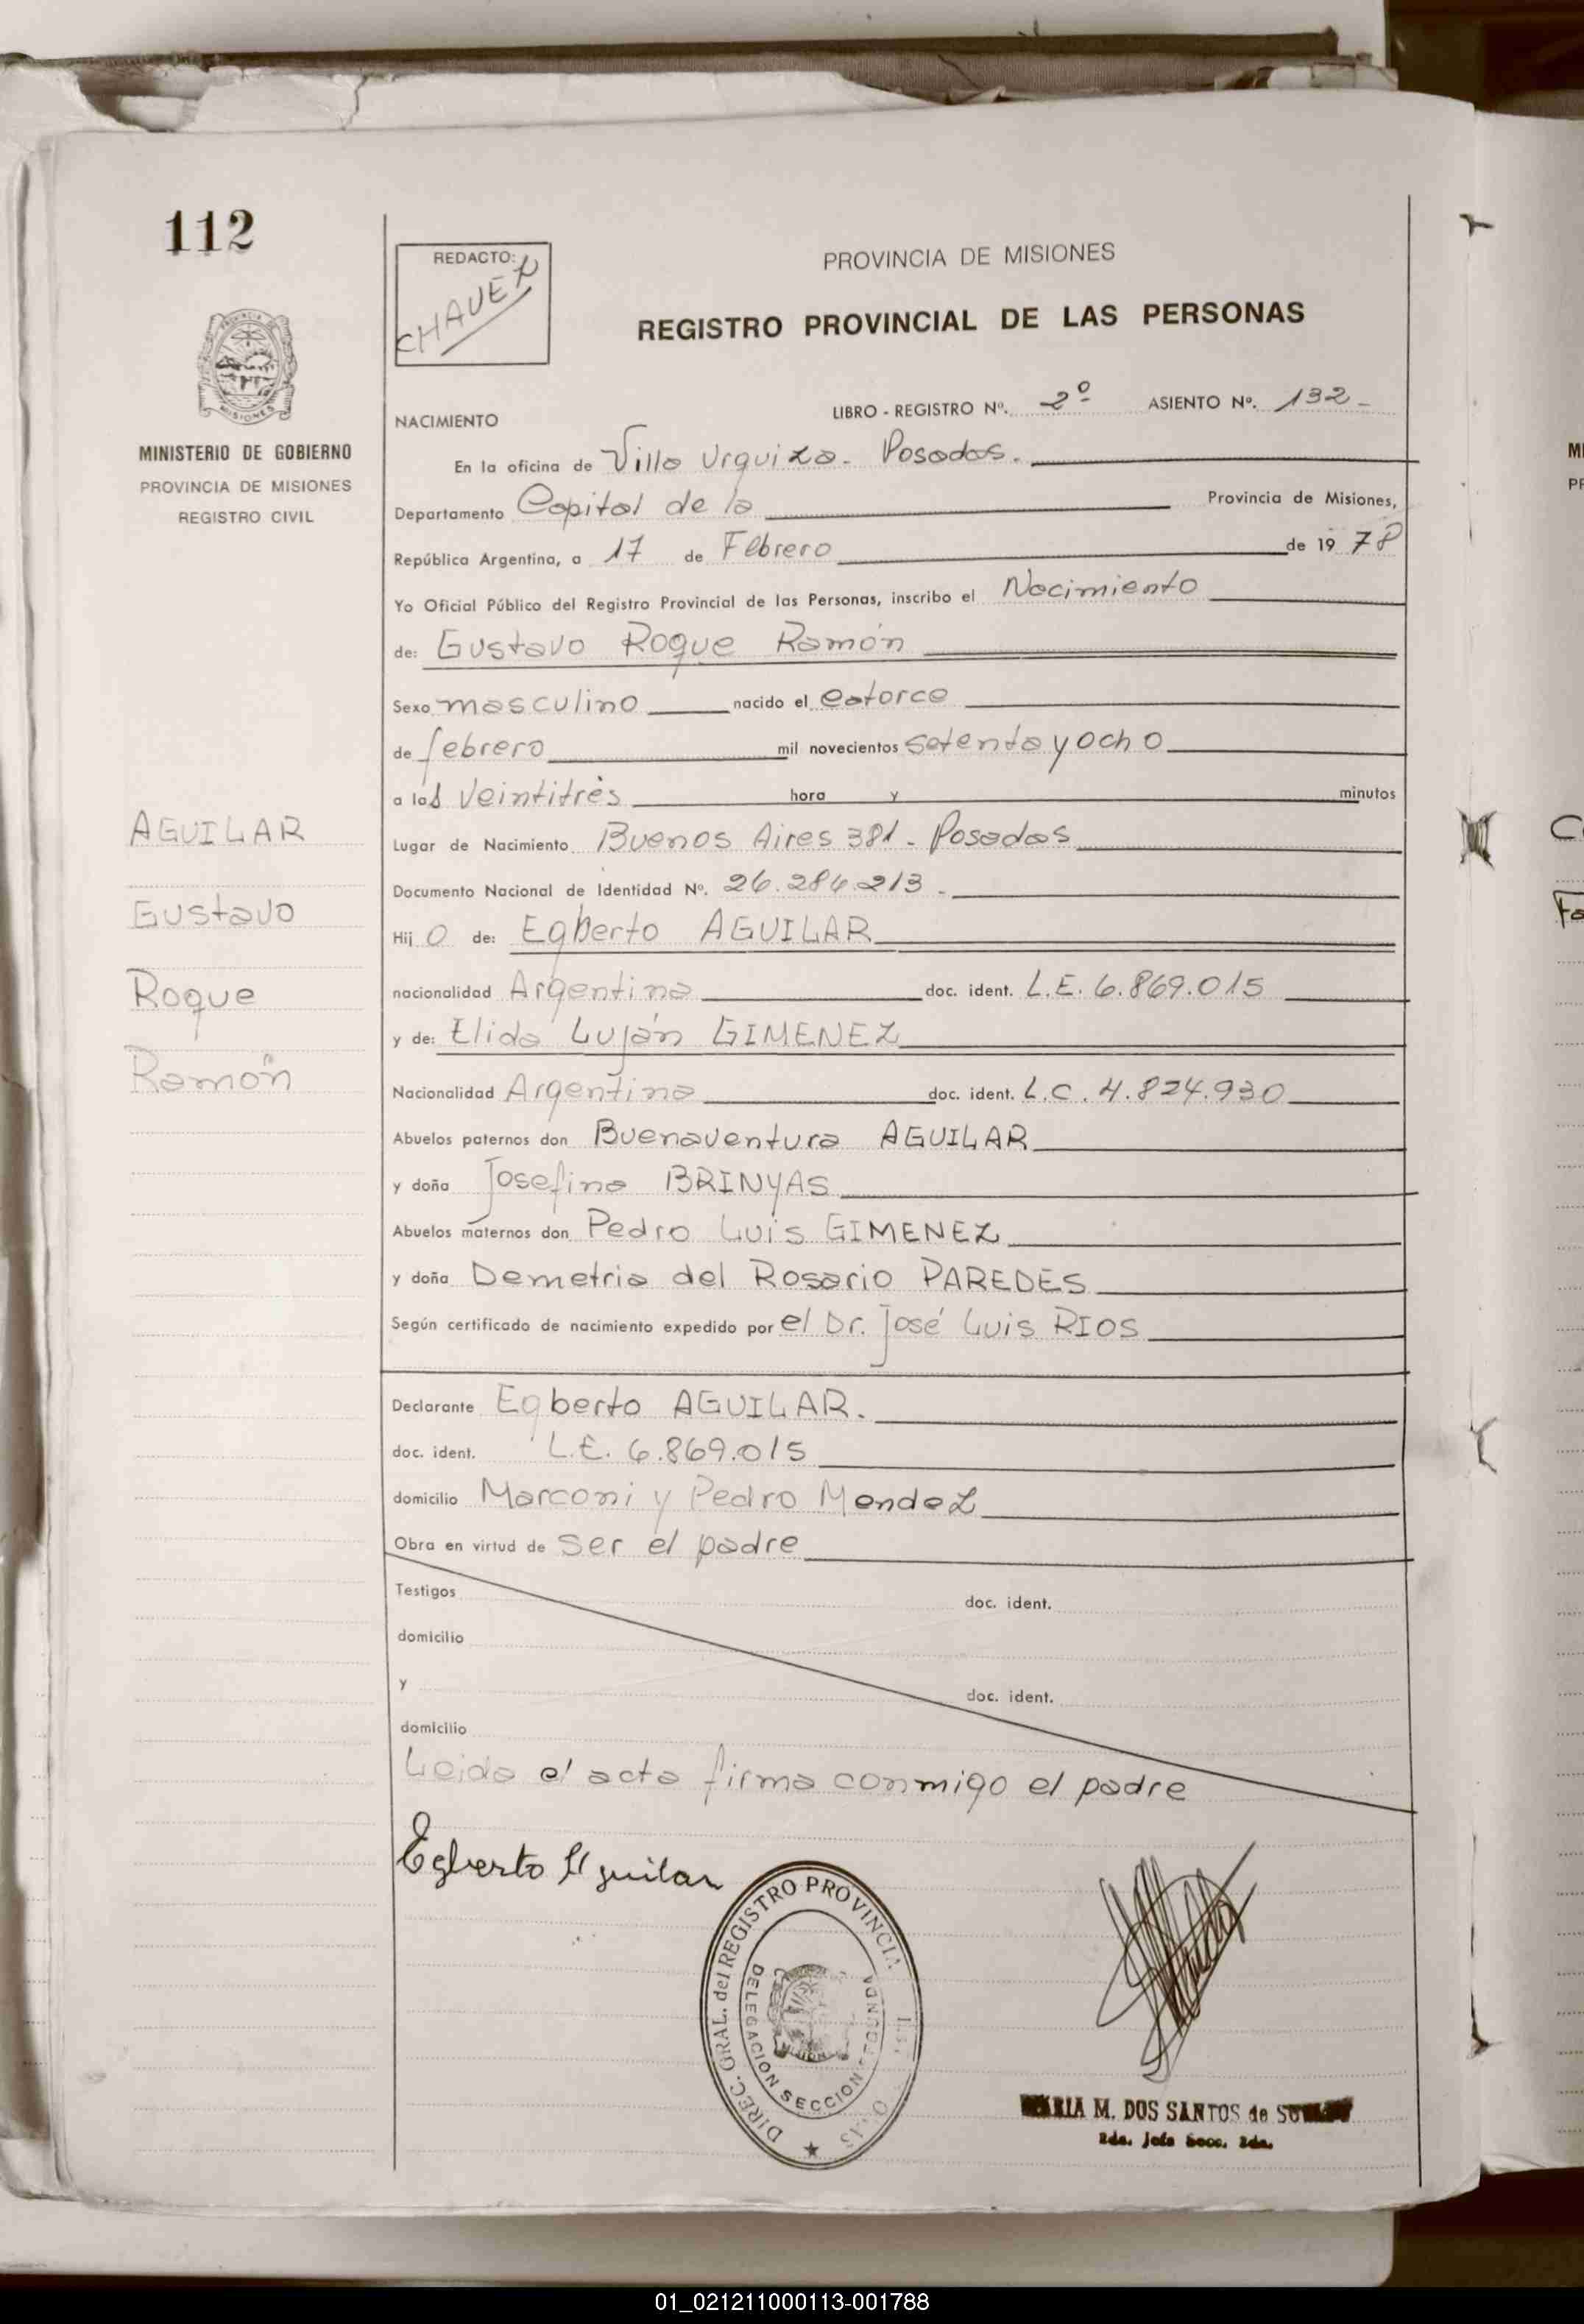 112
REDACTO:
CHAVEZ
PROVINCIA DE MISIONES
REGISTRO PROVINCIAL DE LAS PERSONAS
MINISTERIO DE GOBIERNO
PROVINCIA DE MISIONES
REGISTRO CIVIL
NACIMIENTO LIBRO - REGISTRO Nº. 2º ASIENTO Nº. 132 -
En la oficina de Villa Urquiza - Posadas.
Departamento Capital de la Provincia de Misiones,
República Argentina, a 17 de Febrero de 19 78
Yo Oficial Público del Registro Provincial de las Personas, inscribo el Nacimiento
de: Gustavo Roque Ramón
Sexo masculino nacido el catorce
de febrero mil novecientos setenta y ocho
a las veintitrés hora y minutos
AGUILAR
Gustavo
Roque
Ramón
Lugar de Nacimiento Buenos Aires 381 - Posadas
Documento Nacional de Identidad Nº. 26.284.213 -
Hij o de: Egberto AGUILAR
nacionalidad Argentina doc. ident. L.E. 6.869.015
y de: Elida Luján GIMENEZ
Nacionalidad Argentina doc. ident. L.C. 4.824.930
Abuelos paternos don Buenaventura AGUILAR
y doña Josefina BRINYAS
Abuelos maternos don Pedro Luis GIMENEZ
y doña Demetria del Rosario PAREDES
Según certificado de nacimiento expedido por el Dr. José Luis RIOS
Declarante Egberto AGUILAR.
doc. ident. L.E. 6.869.015
domicilio Marconi y Pedro Mendez
Obra en virtud de ser el padre
Testigos doc. ident.
domicilio
y doc. ident.
domicilio
Leida el acta firma conmigo el padre
Egberto Aguilar
DIREC. GRAL. del REGISTRO PROVINCIAL
DELEGACION SECCION SEGUNDA
MARIA M. DOS SANTOS de
2da. Jefe Secc. 2da.
01_021211000113-001788